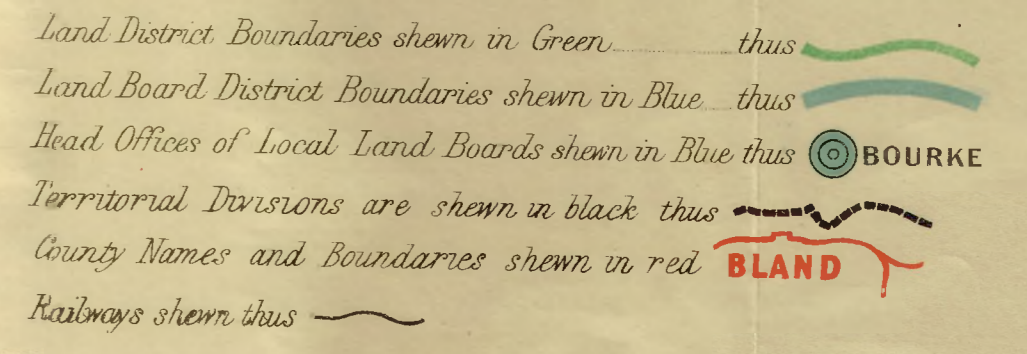 Land District Boundaries shewn in Green thus
Land Board District Boundaries shewn in Blue thus
Head Offices of Local Land Boards shewn in Blue thus BOURKE
Territorial Divisions are shewn in black thus
County Names and Boundaries shewn in red BLAND
Railways shewn thus